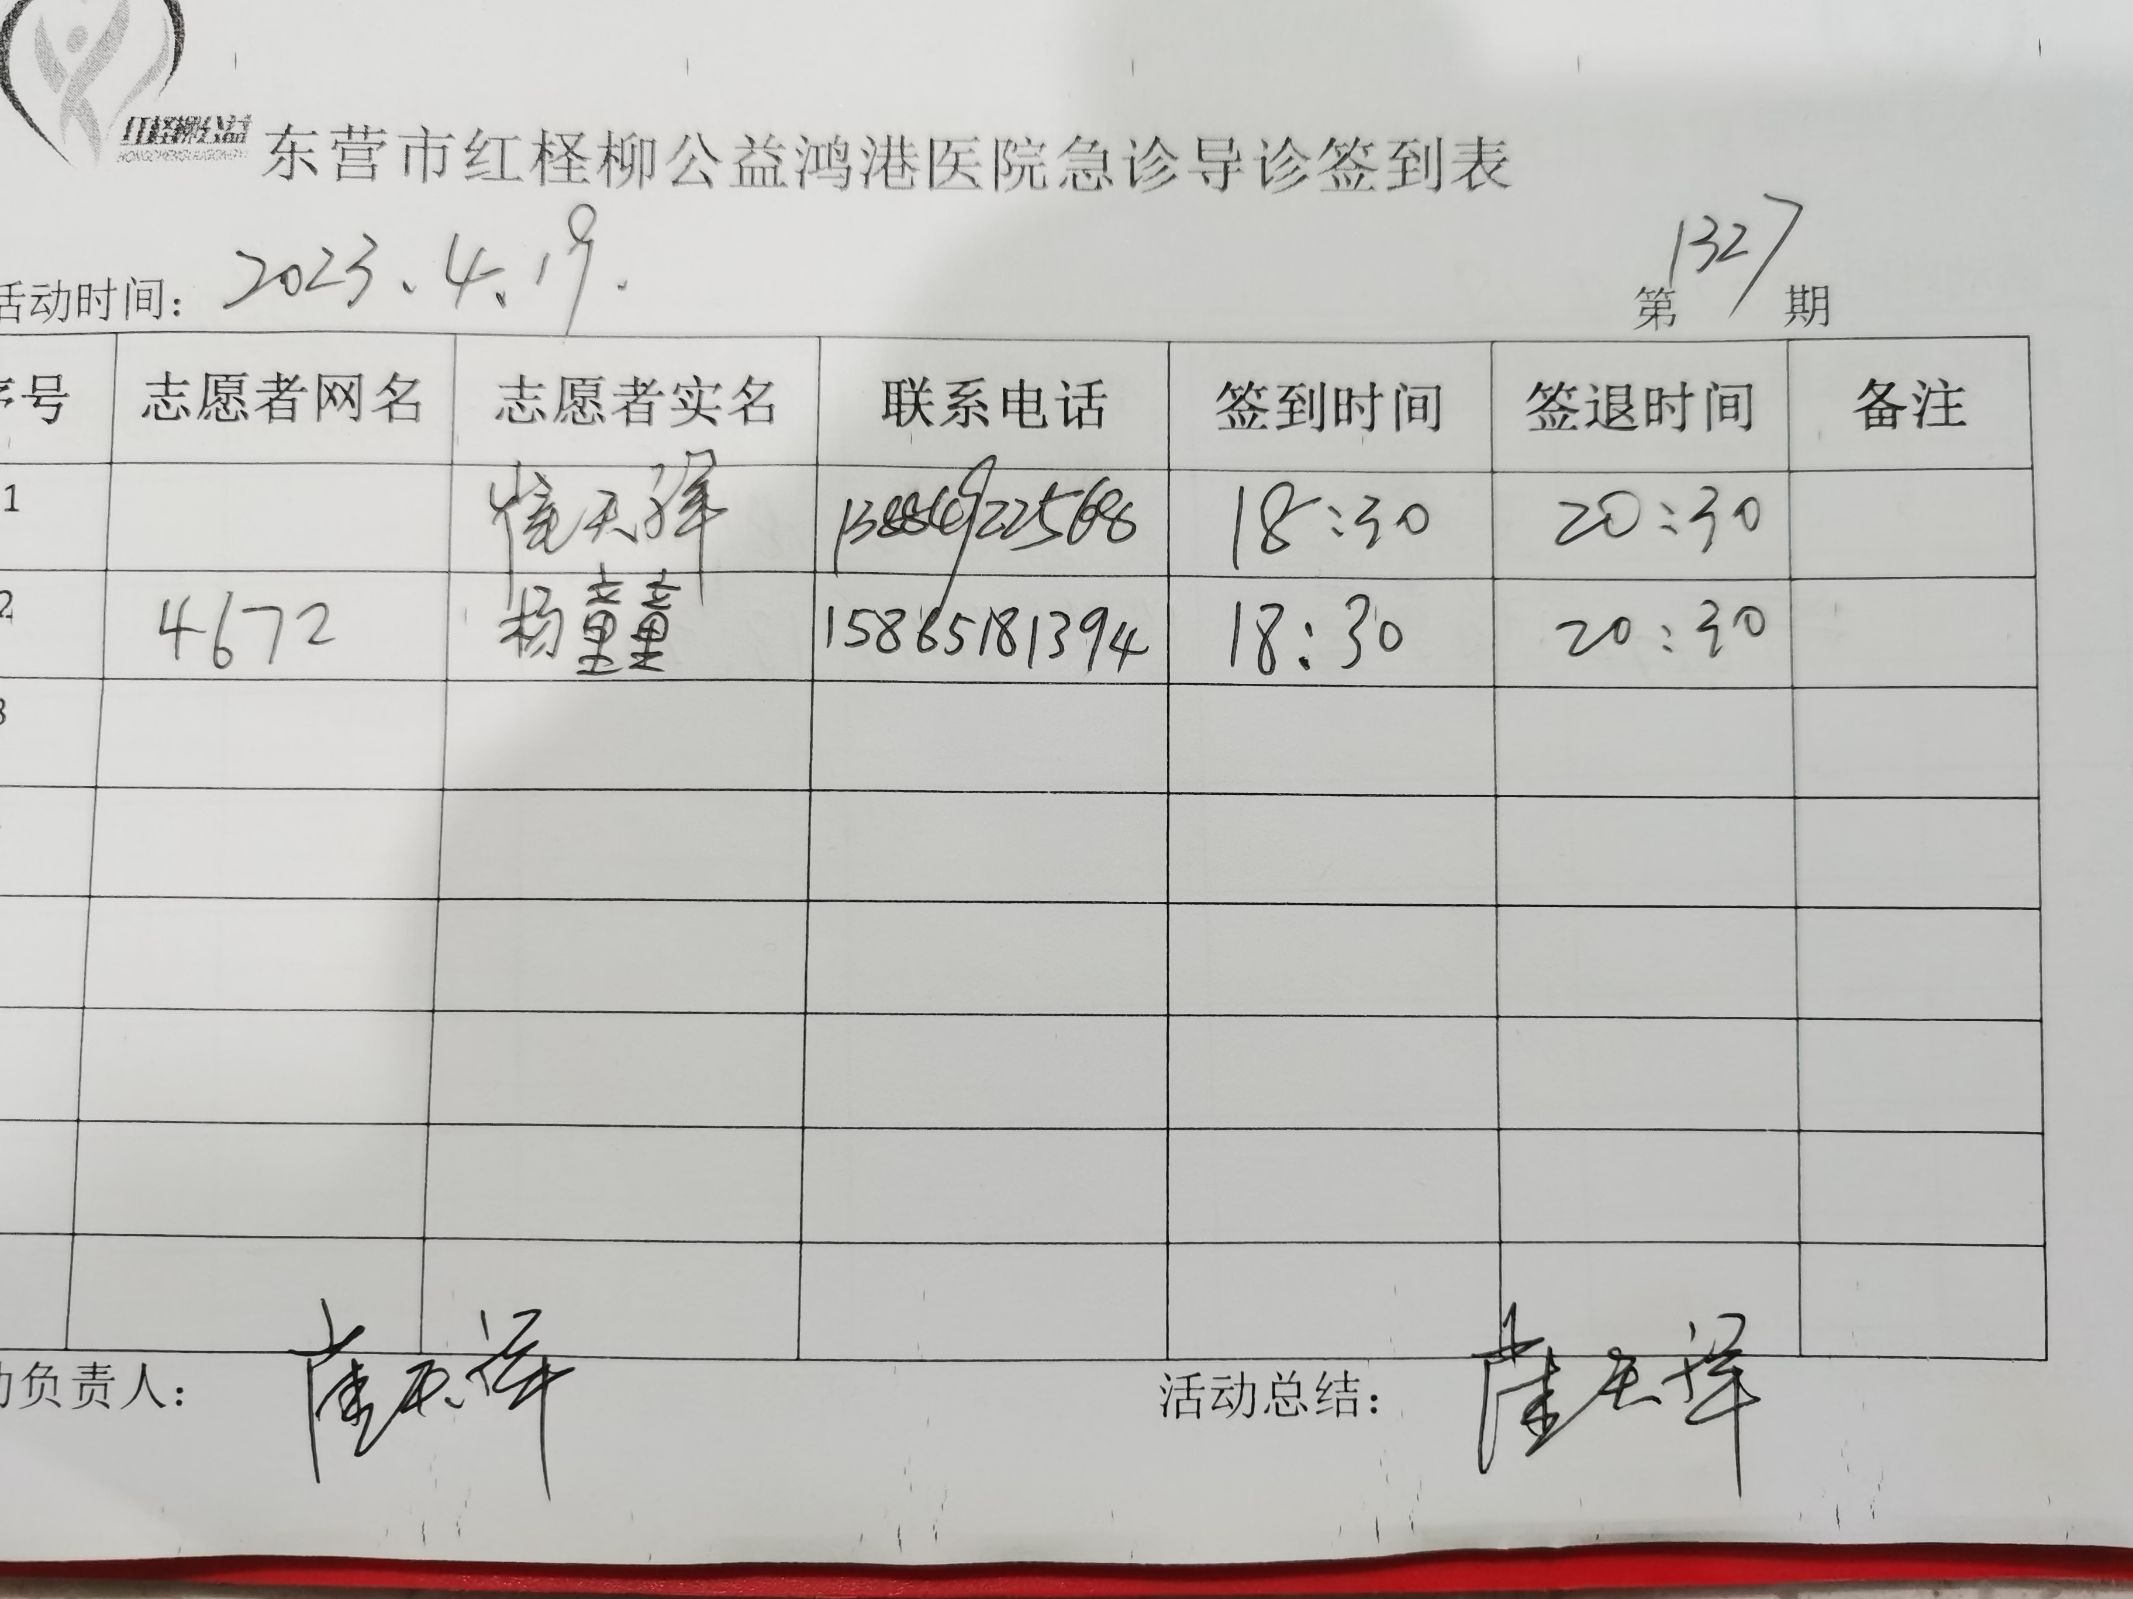 红柽柳公益
东营市红柽柳公益鸿港医院急诊导诊签到表
活动时间: 2023.4.19. 第1327期
序号 志愿者网名 志愿者实名 联系电话 签到时间 签退时间 备注
1 18:30 20:30
2 4672 杨董董 15865181394 18:30 20:30
3
动负责人: 崔天祥 活动总结: 崔天祥